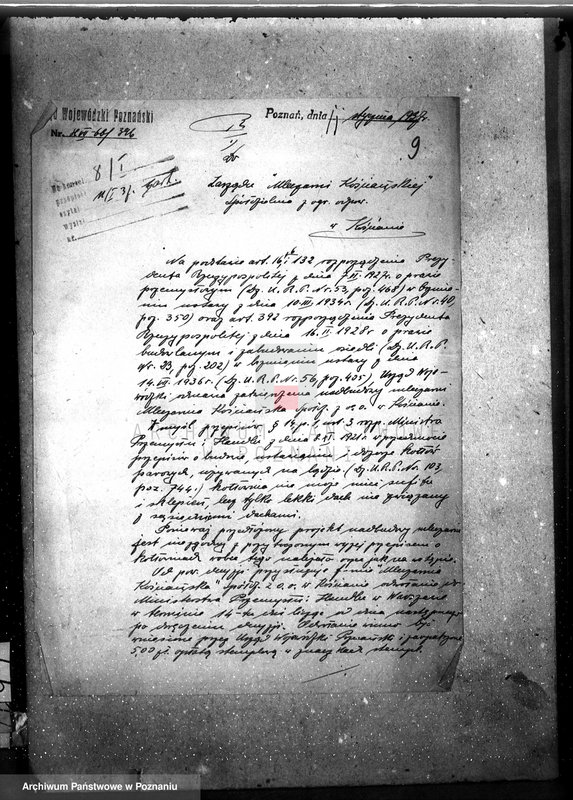 d Wojewódzki Poznański
Poznań, dnia 11 stycznia 1937r.
Nr. XVI 60/
9
8/I
Do
Zarządu "Mleczarni Kościańskiej"
Spółdzielnia z ogr. odpow.
w Kościanie
Na podstawie art. 16 i 132 rozporządzenia Prezy-
denta Rzeczypospolitej z dnia 7.VI.1927r. o prawie
przemysłowym (Dz. U. R. P. Nr. 53, poz. 468) w brzmie-
niu ustawy z dnia 10.III.1934r. (Dz. U. R. P. Nr. 40,
poz. 350) oraz art. 392 rozporządzenia Prezydenta
Rzeczypospolitej z dnia 16.II.1928r. o prawie
budowlanym i zabudowaniu osiedli (Dz. U. R. P.
Nr. 23, poz. 202) w brzmieniu ustawy z dnia
14.VII.1936r. (Dz. U. R. P. Nr. 56, poz. 405) Urząd Woje-
wódzki odmawia zatwierdzenia nadbudowy mleczarni
Mleczarnia Kościańska Spółdz. z o.o. w Kościanie.
W myśl przepisu § 1 art. 3 rozp. Ministra
Przemysłu i Handlu z dnia 8.VI.1921 w przedmiocie
przepisów o budowie, ustawianiu i dozorze kotłów
parowych, używanych na lądzie (Dz. U. R. P. Nr. 103,
poz. 744) kotłownia nie może mieć sufitu
i sklepień, lecz tylko lekki dach nie związany
z sąsiednimi dachami.
Ponieważ przedłożony projekt nadbudowy mleczarni
jest niezgodny z przytoczonym wyżej przepisem o
kotłowniach wobec tego należało orzec jak na wstępie.
Od pow. decyzji przysługuje firmie "Mleczarnia
Kościańska" Spółdz. z o.o. w Kościanie odwołanie do
Ministerstwa Przemysłu i Handlu w Warszawie
w terminie 14-tu dni licząc od dnia następnego
po doręczeniu decyzji. Odwołanie winno być
wniesione przez Urząd Wojewódzki Poznański i zaopatrzone
5,00 zł. opłatą stemplową w znaczkach stempl.
ARCHIWUM PAŃSTWOWE
W POZNANIU
Archiwum Państwowe w Poznaniu